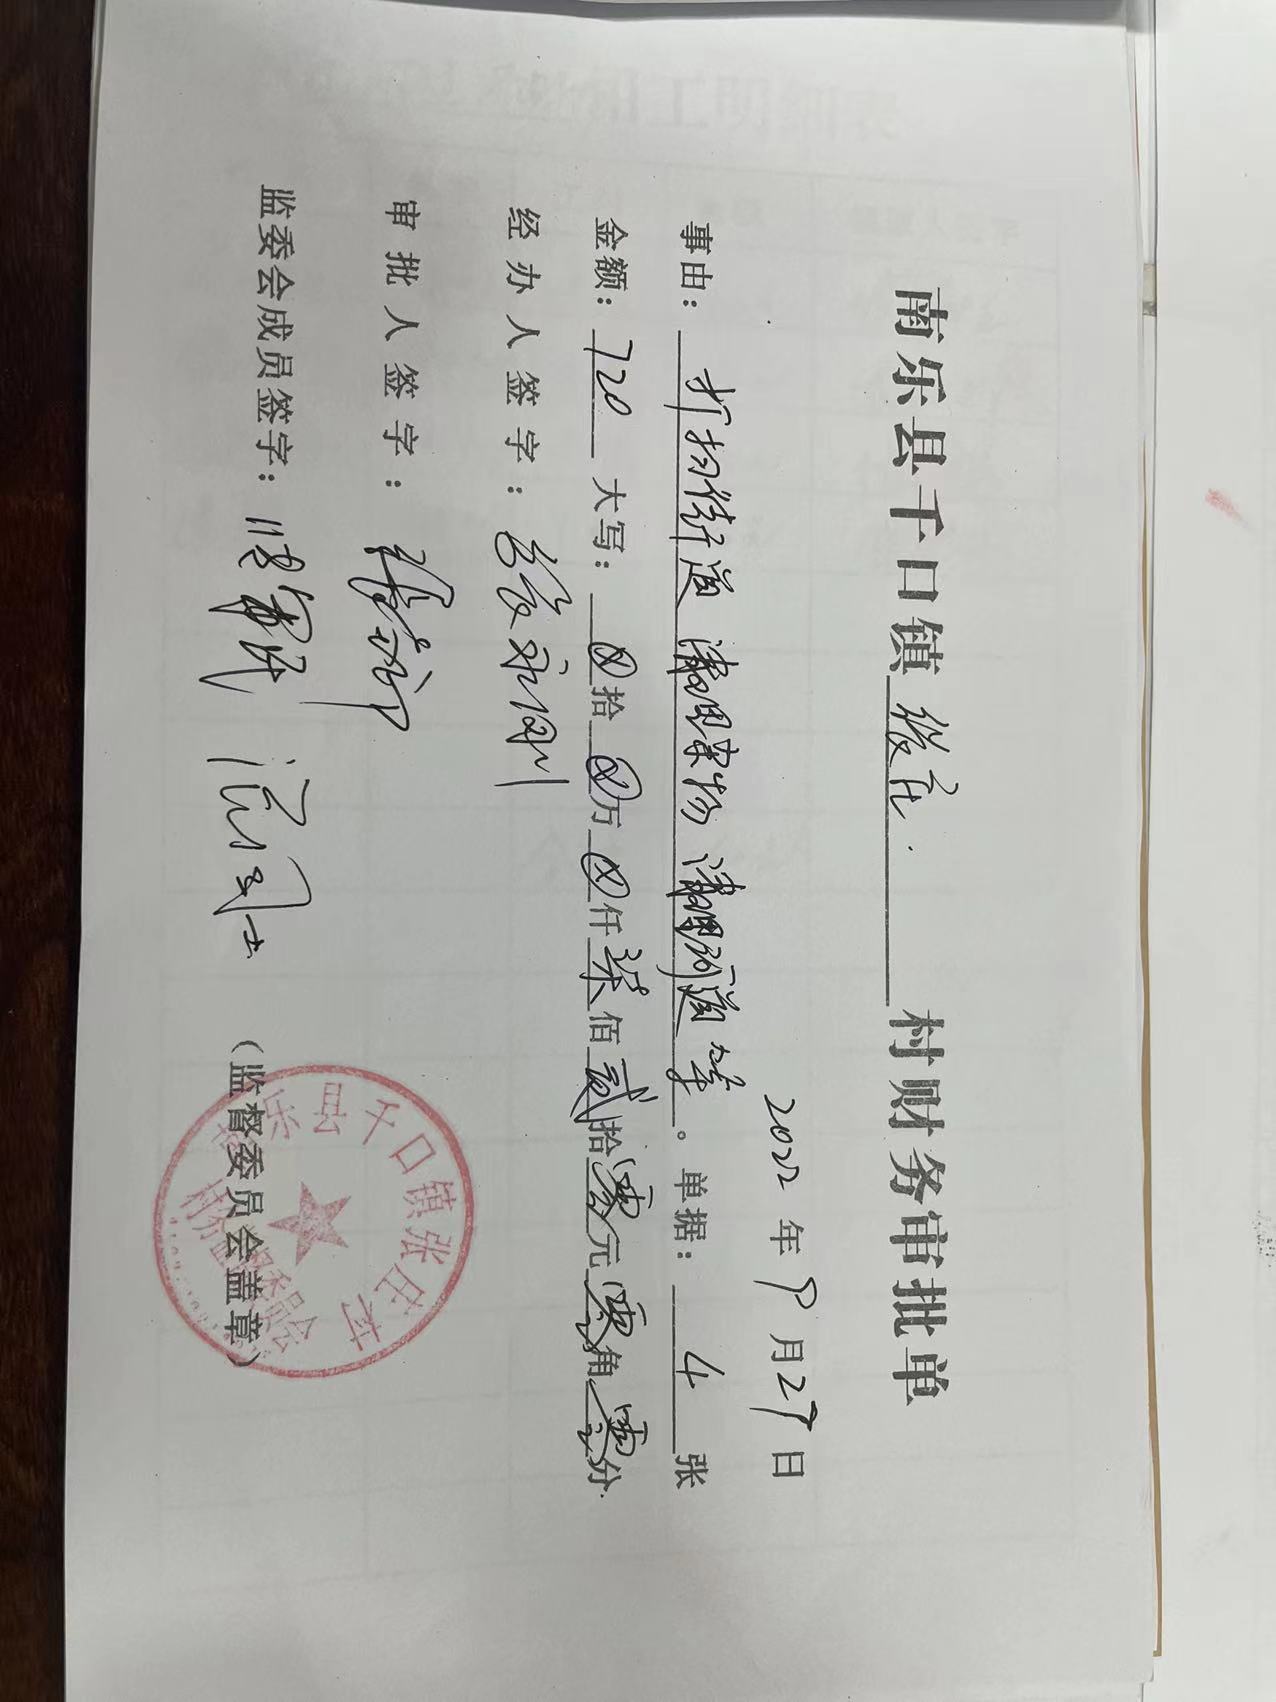 南乐县千口镇张庄村财务审批单
2022年9月29日
事由：打扫街道 清理杂物 清理河道等。单据：4张
金额：720 大写：⊗拾⊗万⊗仟柒佰贰拾零元零角零分
经办人签字：
审批人签字：
监委会成员签字：
（监督委员会盖章）
乐县千口镇张庄村